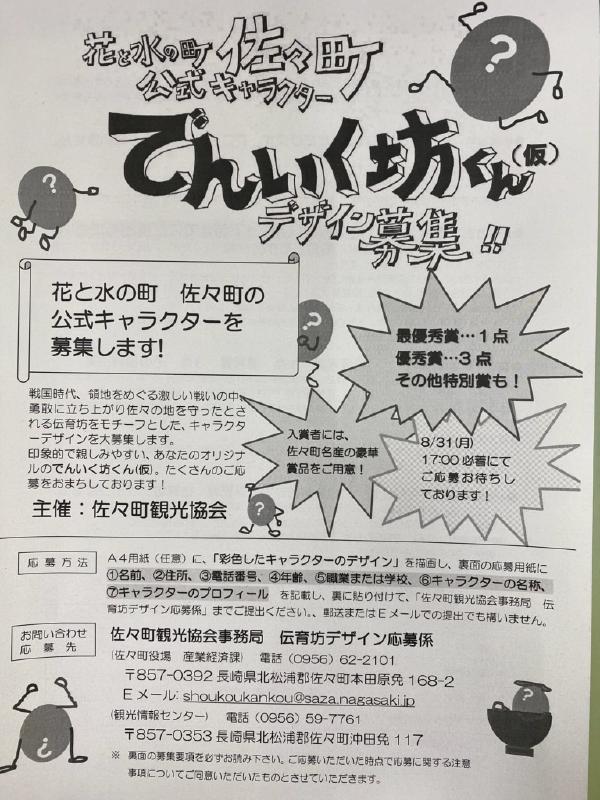 花と水の町 佐々町
公式キャラクター
でんいく坊くん(仮)
デザイン募集!!
花と水の町 佐々町の
公式キャラクターを
募集します!
最優秀賞…1点
優秀賞…3点
その他特別賞も!
戦国時代、領地をめぐる激しい戦いの中、
勇敢に立ち上がり佐々の地を守ったとさ
れる伝育坊をモチーフとした、キャラク
ターデザインを大募集します。
印象的で親しみやすい、あなたのオリジナ
ルのでんいく坊くん(仮)。たくさんのご応
募をおまちしております!
入賞者には、
佐々町名産の豪華
賞品をご用意!
8/31(月)
17:00必着にて
ご応募お待ちし
ております!
主催:佐々町観光協会
応募方法
A4用紙(任意)に、「彩色したキャラクターのデザイン」を描画し、裏面の応募用紙に
①名前、②住所、③電話番号、④年齢、⑤職業または学校、⑥キャラクターの名称、
⑦キャラクターのプロフィール を記載し、裏に貼り付けて、「佐々町観光協会事務局 伝
育坊デザイン応募係」までご提出ください。、郵送またはEメールでの提出でも構いません。
お問い合わせ
応募先
佐々町観光協会事務局 伝育坊デザイン応募係
(佐々町役場 産業経済課) 電話(0956)62-2101
〒857-0392長崎県北松浦郡佐々町本田原免168-2
Eメール:shoukoukankou@saza.nagasaki.jp
(観光情報センター) 電話(0956)59-7761
〒857-0353長崎県北松浦郡佐々町沖田免117
※ 裏面の募集要項を必ずお読み下さい。ご応募いただいた時点で応募に関する注意
事項についてご同意いただいたものとさせていただきます。
?
?
?
?
?
?